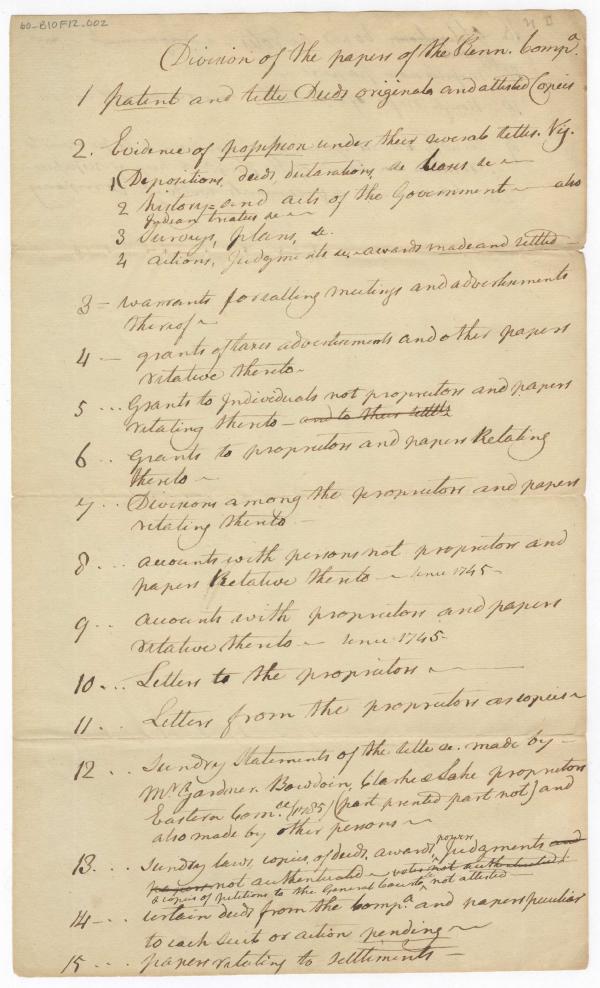 60-B10F12.002
Division of the papers of the Kenn. Compa.
1 patent and title Deeds originals and attested Copies
2. Evidence of possession under their several titles. Viz.
1 Depositions, deeds, declarations, &c leases &c
2 history and acts of the Government also
Indian treaties &c
3 Surveys, plans, &c.
4 actions, Judgments &c, awards made and settled
3 - warrants for calling meetings and advertisements
thereof
4 - grants of taxes advertisements and other papers
relative thereto
5 ... Grants to Individuals not proprietors and papers
relating thereto - and to their titles
6 .. Grants to proprietors and papers Relating
thereto
7 .. Divisions among the proprietors and papers
relating thereto
8 ... accounts with persons not proprietors and
papers Relative thereto - since 1745
9 .. accounts with proprietors and papers
relative thereto - since 1745
10 ... Letters to the proprietors
11 ... Letters from the proprietors as copies
12 ... Sundry Statements of the title &c. made by
Mr. Gardner. Bowdoin, Clarke & Lake proprietors
Eastern Comee. (1785) (part printed part not) and
also made by other persons
13. .. Sundry laws, copies, of deeds, awards, powers Judgments and
papers not authenticated votes not authenticated
& copies of petitions to the General Courts &c not attested
14 - .. certain deeds from the Compa. and papers peculiar
to each suit or action pending
15 ... papers relating to settlements